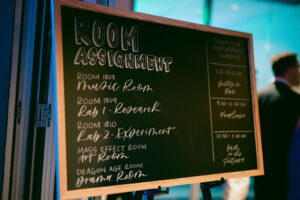 ROOM
ASSIGNMENT
ROOM 1808
Music Room
ROOM 1809
Lab 1 - Research
ROOM 1810
Lab 2 - Experiment
MASS EFFECT ROOM
Art Room
DRAGON AGE ROOM
Drama Room
Pretty in
Pink
Footloose
Back to the
Future